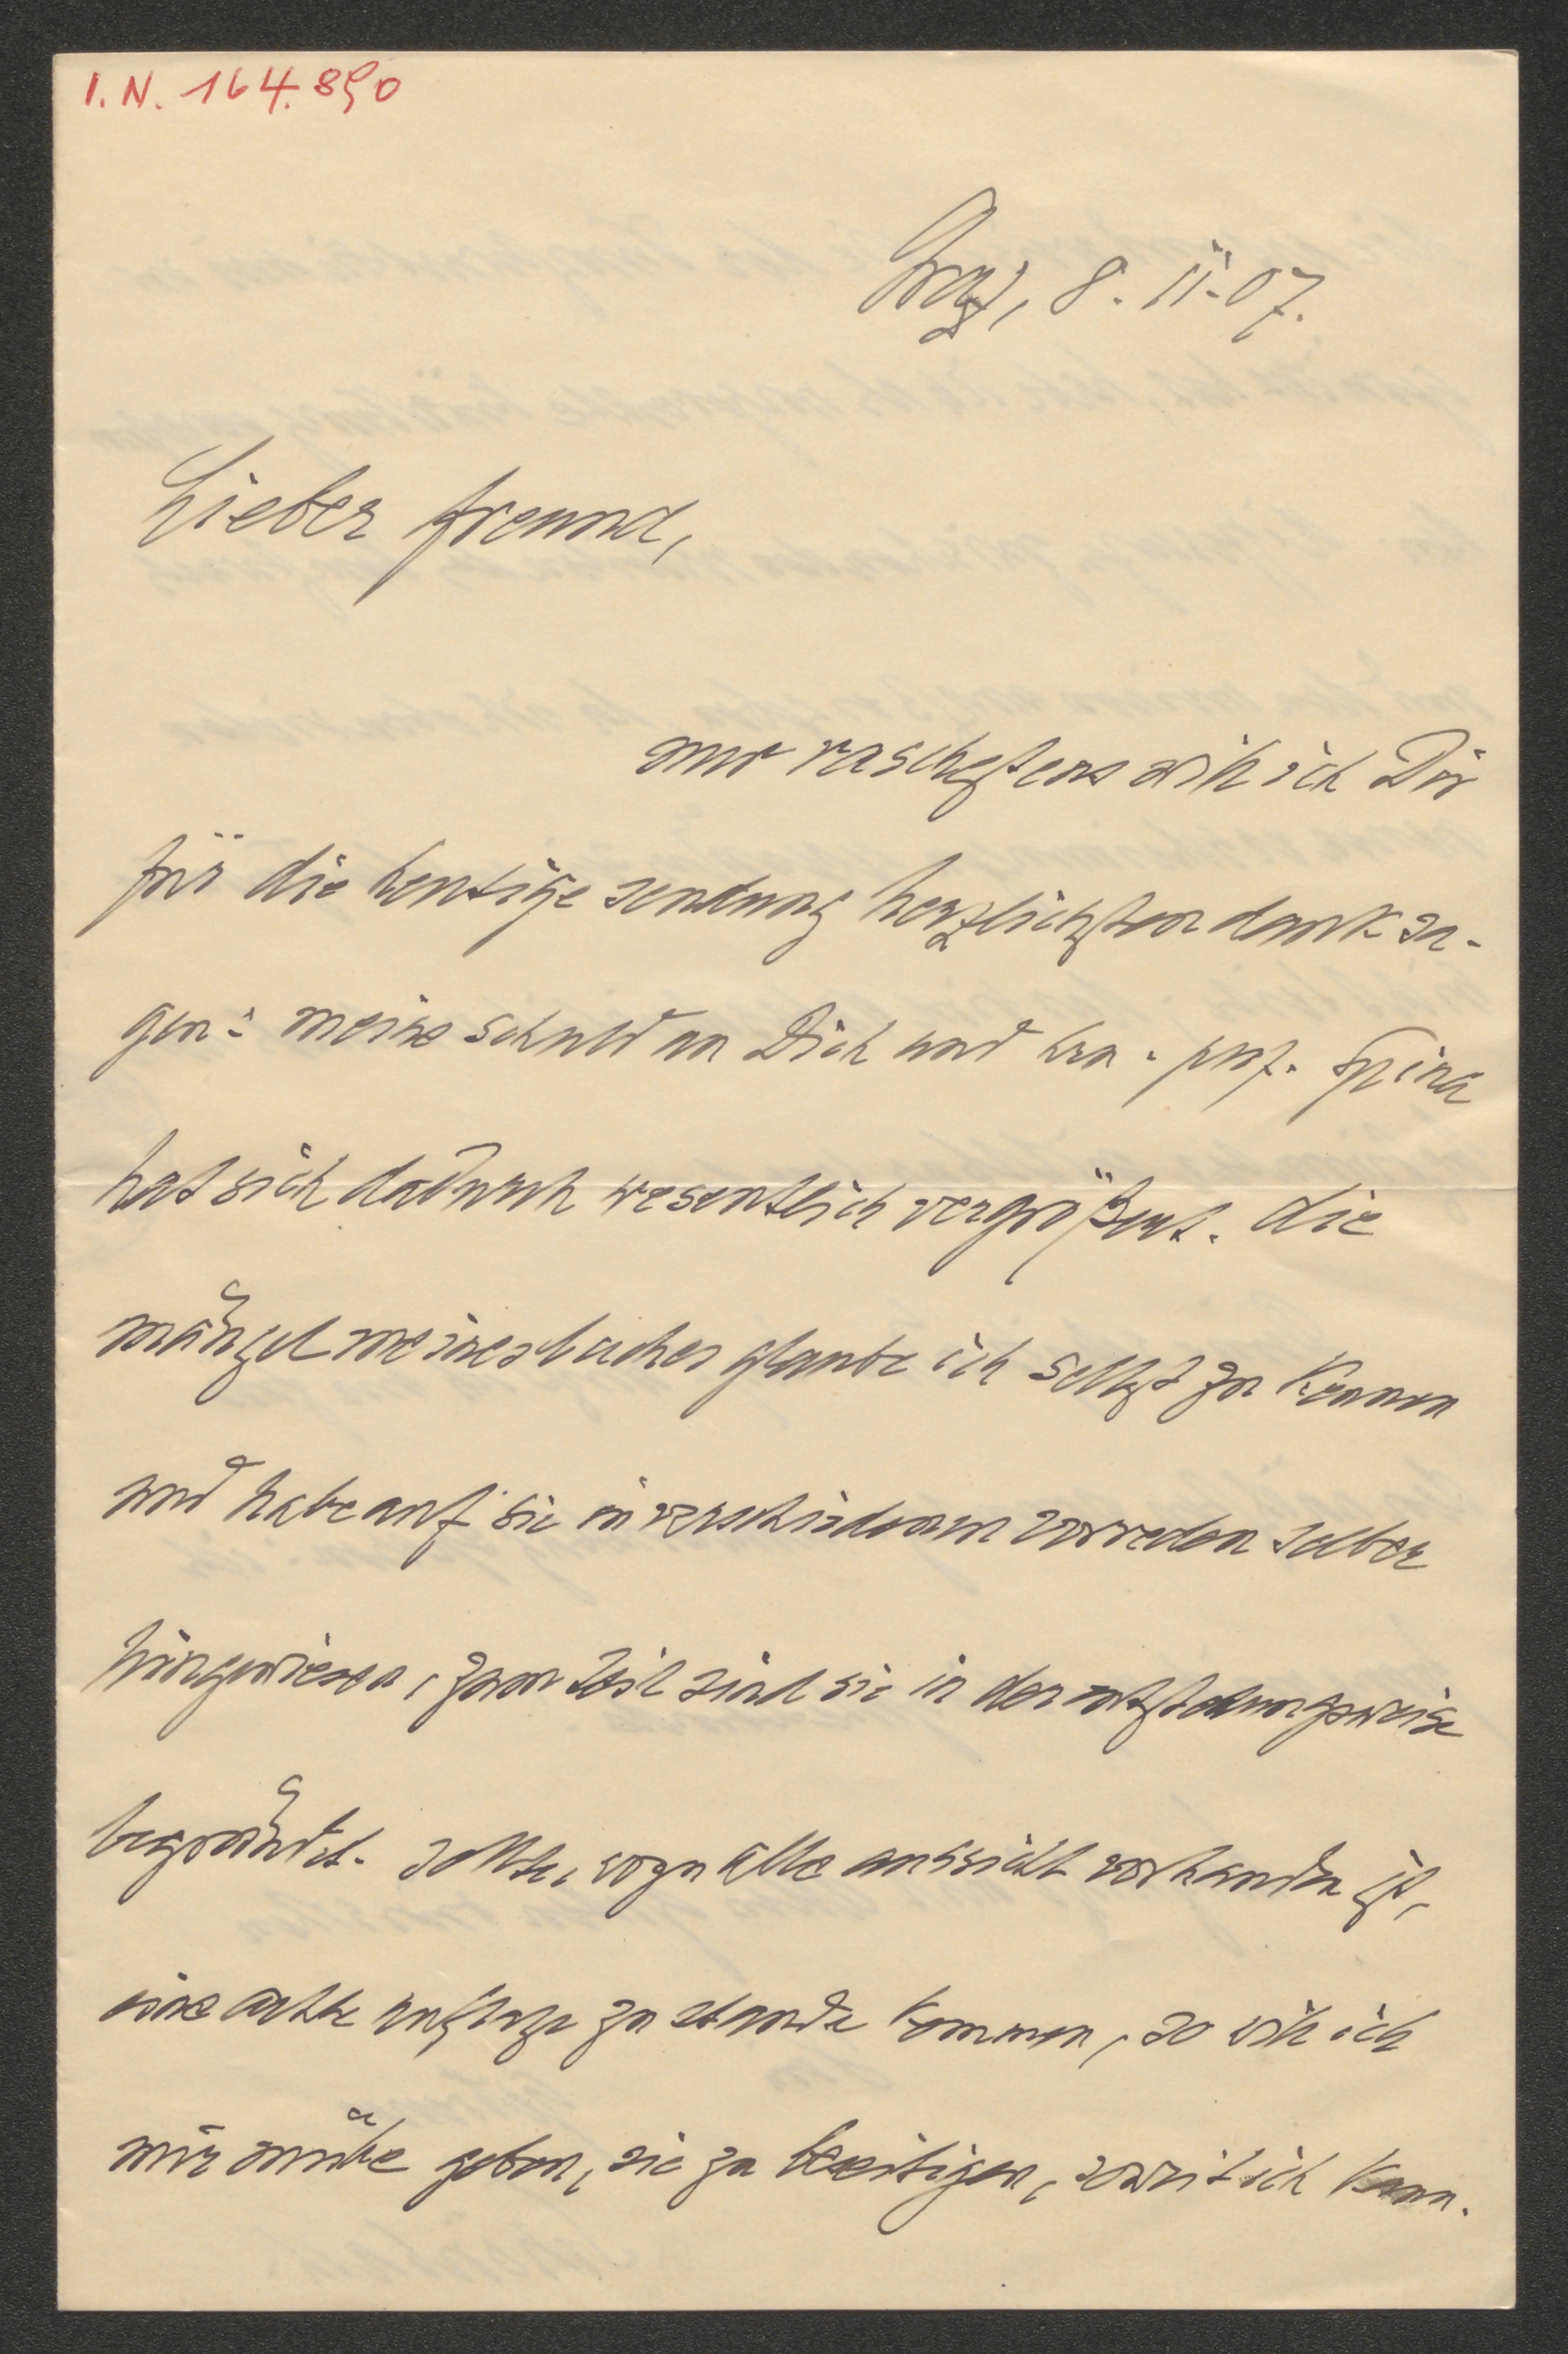 I. N. 164.890
Graz, 8. 11. 07.
Lieber freund,
nur raschestens will ich Dir
für die heutige sendung herzlichsten dank sa-
gen: meine schuld an Dich und hrn. prof. Spina
hat sich dadurch wesentlich vergrößert. die
mängel meines buches glaube ich selbst zu kennen
und habe auf sie in verschiedenen vorreden selber
hingewiesen, zum teil sind sie in der entstehungsweise
begründet. sollte, wozu alle aussicht vorhanden ist,
eine achte auflage zu stande kommen, so will ich
mir mühe geben, sie zu beseitigen, soweit ich kann.